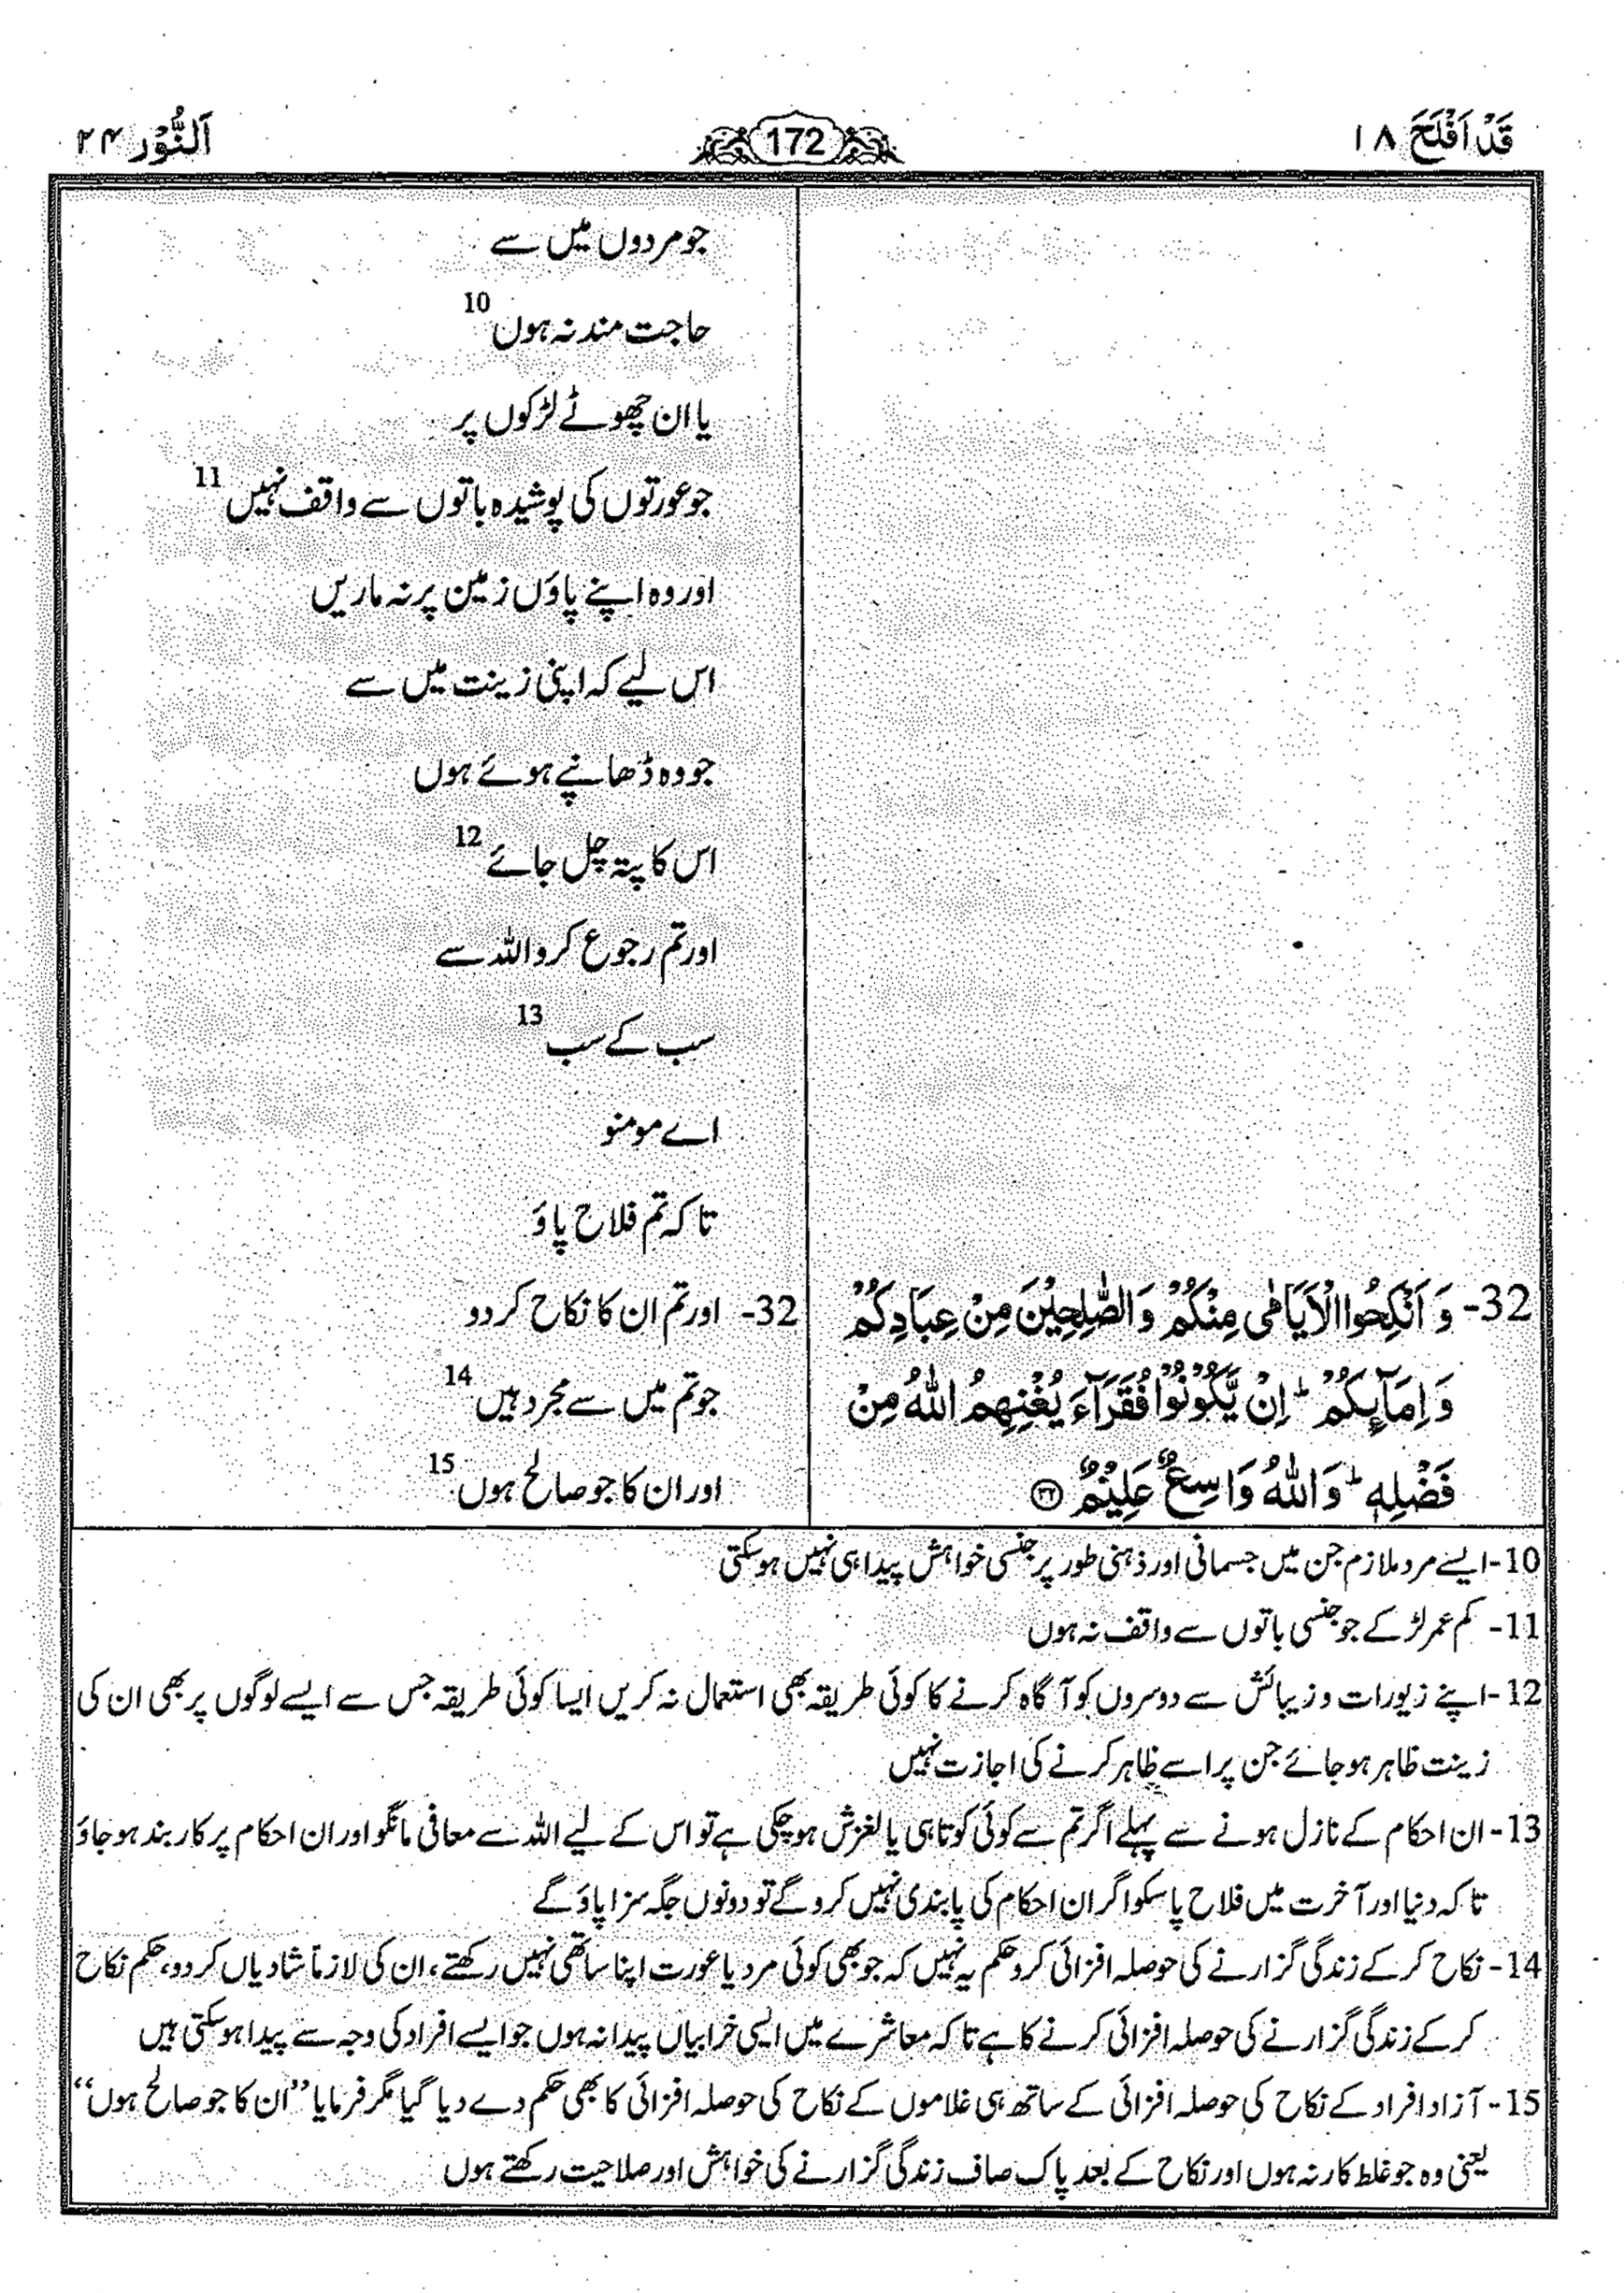 قَدْ اَفْلَحَ ۱۸
172
اَلنُّوْر ۲۴
جو مردوں میں سے
حاجت مند نہ ہوں 10
یا ان چھوٹے لڑکوں پر
جو عورتوں کی پوشیدہ باتوں سے واقف نہیں 11
اور وہ اپنے پاؤں زمین پر نہ ماریں
اس لیے کہ اپنی زینت میں سے
جو وہ ڈھانپے ہوئے ہوں
اس کا پتہ چل جائے 12
اور تم رجوع کرو اللہ سے
سب کے سب 13
اے مومنو
تاکہ تم فلاح پاؤ
32- وَ اَنْكِحُوا الْاَيَامٰى مِنْكُمْ وَ الصّٰلِحِيْنَ مِنْ عِبَادِكُمْ
وَ اِمَآىِٕكُمْ ؕ اِنْ يَّكُوْنُوْا فُقَرَآءَ يُغْنِهِمُ اللّٰهُ مِنْ
فَضْلِهٖ ؕ وَ اللّٰهُ وَاسِعٌ عَلِيْمٌ ۳۲
32- اور تم ان کا نکاح کر دو
جو تم میں سے مجرد ہیں 14
اور ان کا جو صالح ہوں 15
10- ایسے مرد ملازم جن میں جسمانی اور ذہنی طور پر جنسی خواہش پیدا ہی نہیں ہو سکتی
11- کم عمر لڑکے جو جنسی باتوں سے واقف نہ ہوں
12- اپنے زیورات و زیبائش سے دوسروں کو آگاہ کرنے کا کوئی طریقہ بھی استعمال نہ کریں ایسا کوئی طریقہ جس سے ایسے لوگوں پر بھی ان کی
زینت ظاہر ہو جائے جن پر اسے ظاہر کرنے کی اجازت نہیں
13- ان احکام کے نازل ہونے سے پہلے اگر تم سے کوئی کوتاہی یا لغزش ہو چکی ہے تو اس کے لیے اللہ سے معافی مانگو اور ان احکام پر کاربند ہو جاؤ
تاکہ دنیا اور آخرت میں فلاح پا سکو اگر ان احکام کی پابندی نہیں کرو گے تو دونوں جگہ سزا پاؤ گے
14- نکاح کر کے زندگی گزارنے کی حوصلہ افزائی کرو حکم یہ نہیں کہ جو بھی کوئی مرد یا عورت اپنا ساتھی نہیں رکھتے، ان کی لازماً شادیاں کر دو، حکم نکاح
کر کے زندگی گزارنے کی حوصلہ افزائی کرنے کا ہے تاکہ معاشرے میں ایسی خرابیاں پیدا نہ ہوں جو ایسے افراد کی وجہ سے پیدا ہو سکتی ہیں
15- آزاد افراد کے نکاح کی حوصلہ افزائی کے ساتھ ہی غلاموں کے نکاح کی حوصلہ افزائی کا بھی حکم دے دیا گیا مگر فرمایا ”ان کا جو صالح ہوں“
یعنی وہ جو غلط کار نہ ہوں اور نکاح کے بعد پاک صاف زندگی گزارنے کی خواہش اور صلاحیت رکھتے ہوں